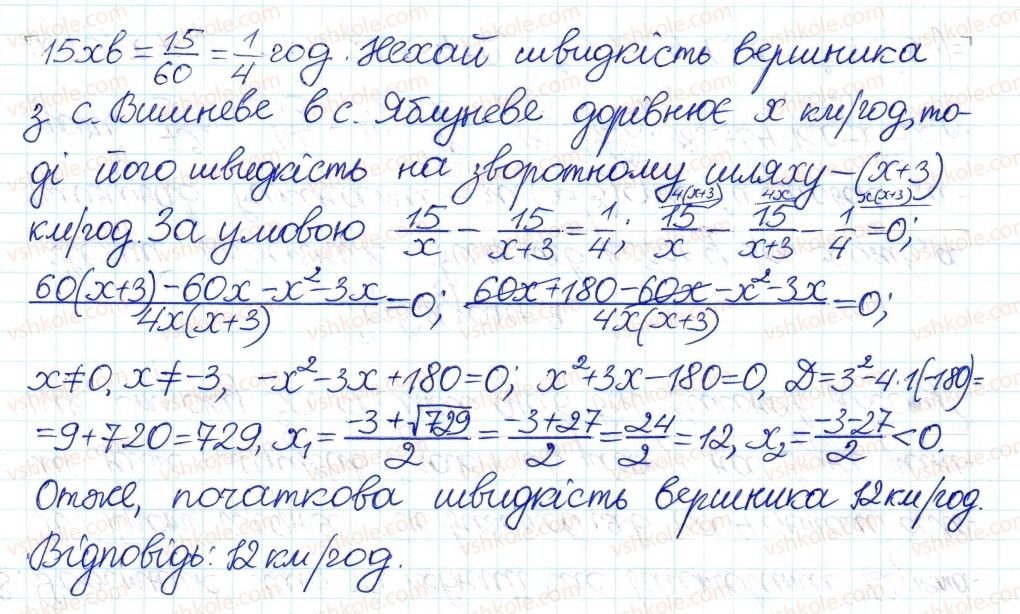 15хв = 15/60 = 1/4 год. Нехай швидкість вершника
з с. Вишневе в с. Яблуневе дорівнює x км/год, то-
ді його швидкість на зворотному шляху – (x+3)
км/год. За умовою 15/x − 15/(x+3) = 1/4; 15/x^(4(x+3)) − 15/(x+3)^(4x) − 1/4^(x(x+3)) = 0;
(60(x+3) − 60x − x² − 3x)/(4x(x+3)) = 0; (60x + 180 − 60x − x² − 3x)/(4x(x+3)) = 0;
x ≠ 0, x ≠ −3, −x² − 3x + 180 = 0; x² + 3x − 180 = 0, Д = 3² − 4·1(−180) =
= 9 + 720 = 729, x₁ = (−3 + √729)/2 = (−3 + 27)/2 = 24/2 = 12, x₂ = (−3−27)/2 < 0.
Отже, початкова швидкість вершника 12 км/год.
Відповідь: 12 км/год.